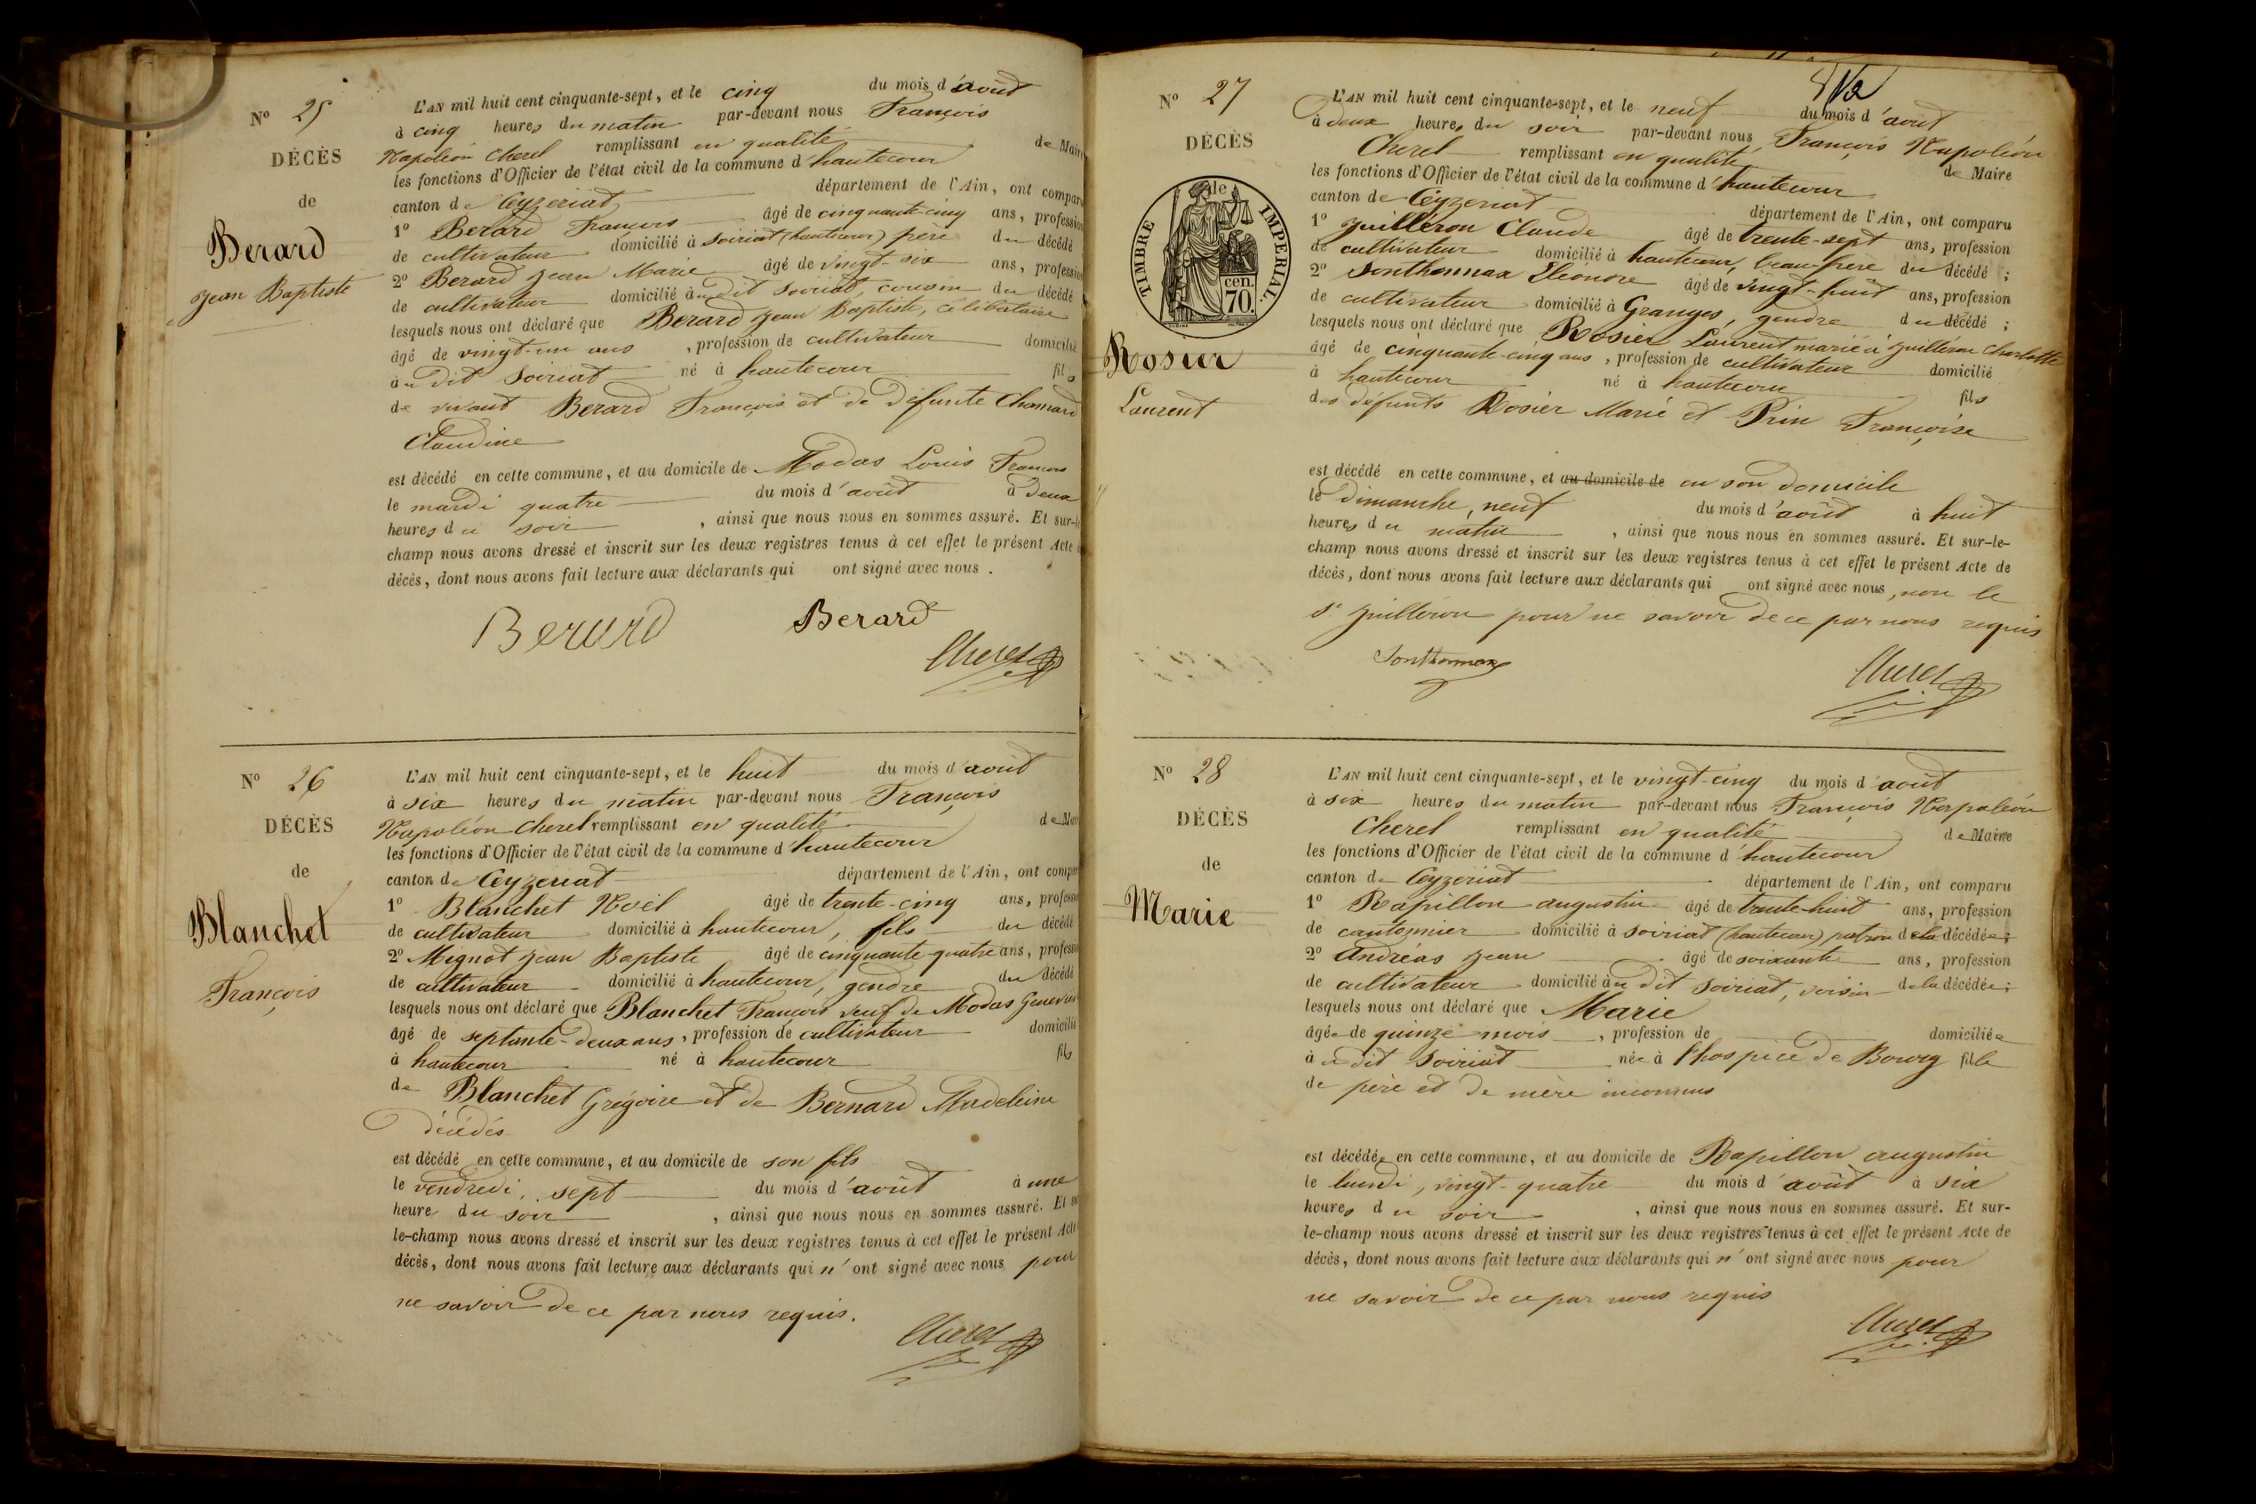 N° 25
DÉCÈS
de
Berard
Jean Baptiste
L'AN mil huit cent cinquante-sept, et le cinq du mois d'août
à cinq heures du matin par-devant nous François
Napoléon Cherel remplissant en qualité de Maire
les fonctions d'Officier de l'état civil de la commune d'hautecour
canton de Ceyzeriat département de l'Ain, ont compar
1° Berard François âgé de cinquante-cinq ans, profession
de cultivateur domicilié à Soiriat (hautecour) père du décédé
2° Berard Jean Marie âgé de vingt-six ans, profession
de cultivateur domicilié au dit Soiriat, cousin du décédé
lesquels nous ont déclaré que Berard Jean Baptiste, célibataire
âgé de vingt-un ans, profession de cultivateur domicilié
au dit Soiriat né à hautecour fils
de vivant Berard François et de défunte Chanard
Claudine
est décédé en cette commune, et au domicile de Modas Louis François
le mardi quatre du mois d'août à deux
heures du soir, ainsi que nous nous en sommes assuré. Et sur-le
champ nous avons dressé et inscrit sur les deux registres tenus à cet effet le présent Acte
décès, dont nous avons fait lecture aux déclarants qui ont signé avec nous.
Berard Berard
Cherel
N° 26
DÉCÈS
de
Blanchet
François
L'AN mil huit cent cinquante-sept, et le huit du mois d'août
à six heures du matin par-devant nous François
Napoléon Cherel remplissant en qualité de Mair
les fonctions d'Officier de l'état civil de la commune d'hautecour
canton de Ceyzeriat département de l'Ain, ont compar
1° Blanchet Noël âgé de trente-cinq ans, profession
de cultivateur domicilié à hautecour, fils du décédé
2° Mignot Jean Baptiste âgé de cinquante quatre ans, profession
de cultivateur domicilié à hautecour, gendre du décédé
lesquels nous ont déclaré que Blanchet François veuf de Modas Genevieve
âgé de septante-deux ans, profession de cultivateur domicilié
à hautecour né à hautecour fils
de Blanchet Grégoire et de Bernard Madeleine
décédés
est décédé en cette commune, et au domicile de son fils
le vendredi, sept du mois d'août à une
heure du soir, ainsi que nous nous en sommes assuré. Et sur
le-champ nous avons dressé et inscrit sur les deux registres tenus à cet effet le présent Acte
décès, dont nous avons fait lecture aux déclarants qui n'ont signé avec nous pour
ne savoir de ce par nous requis.
Cherel
N° 27
DÉCÈS
de
TIMBRE IMPERIAL
cen.
70.
Rosier
Laurent
L'AN mil huit cent cinquante-sept, et le neuf du mois d'août
à deux heures du soir par-devant nous François Napoléon
Cherel remplissant en qualité de Maire
les fonctions d'Officier de l'état civil de la commune d'hautecour
canton de Ceyzeriat département de l'Ain, ont comparu
1° Juilléron Claude âgé de trente-sept ans, profession
de cultivateur domicilié à hautecour, beau-frère du décédé;
2° Sonthonnax Eléonore âgé de vingt-huit ans, profession
de cultivateur domicilié à Granges, gendre du décédé;
lesquels nous ont déclaré que Rosier Laurent marié à Juilléron Charlotte
âgé de cinquante-cinq ans, profession de cultivateur domicilié
à hautecour né à hautecour fils
des défunts Rosier Marie et Prin Françoise
est décédé en cette commune, et au domicile de en son domicile
le dimanche, neuf du mois d'août à huit
heures du matin, ainsi que nous nous en sommes assuré. Et sur-le-
champ nous avons dressé et inscrit sur les deux registres tenus à cet effet le présent Acte de
décès, dont nous avons fait lecture aux déclarants qui ont signé avec nous, non le
Sr Juilleron pour ne savoir de ce par nous requis
Sonthonnax
Cherel
N° 28
DÉCÈS
de
Marie
L'AN mil huit cent cinquante-sept, et le vingt-cinq du mois d'août
à six heures du matin par-devant nous François Napoléon
Cherel remplissant en qualité de Maire
les fonctions d'Officier de l'état civil de la commune d'hautecour
canton de Ceyzeriat département de l'Ain, ont comparu
1° Rapillon augustin âgé de trente-huit ans, profession
de cantonnier domicilié à Soiriat (hautecour) patron de la décédée;
2° Andréas Jean âgé de soixante ans, profession
de cultivateur domicilié au dit Soiriat, voisin de la décédée;
lesquels nous ont déclaré que Marie
âgée de quinze mois, profession de domiciliée
à u dit Soiriat née à l'hospice de Bourg fille
de père et de mère inconnus
est décédée en cette commune, et au domicile de Rapillon augustin
le lundi, vingt-quatre du mois d'août à six
heures du soir, ainsi que nous nous en sommes assuré. Et sur-
le-champ nous avons dressé et inscrit sur les deux registres tenus à cet effet le présent Acte de
décès, dont nous avons fait lecture aux déclarants qui n'ont signé avec nous pour
ne savoir de ce par nous requis
Cherel